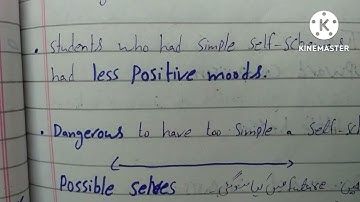 KINEMASTER
• students who had simple self-sche
had less Positive moods.
• Dangerous to have too simple a self-s
Possible selves
future میں کیا